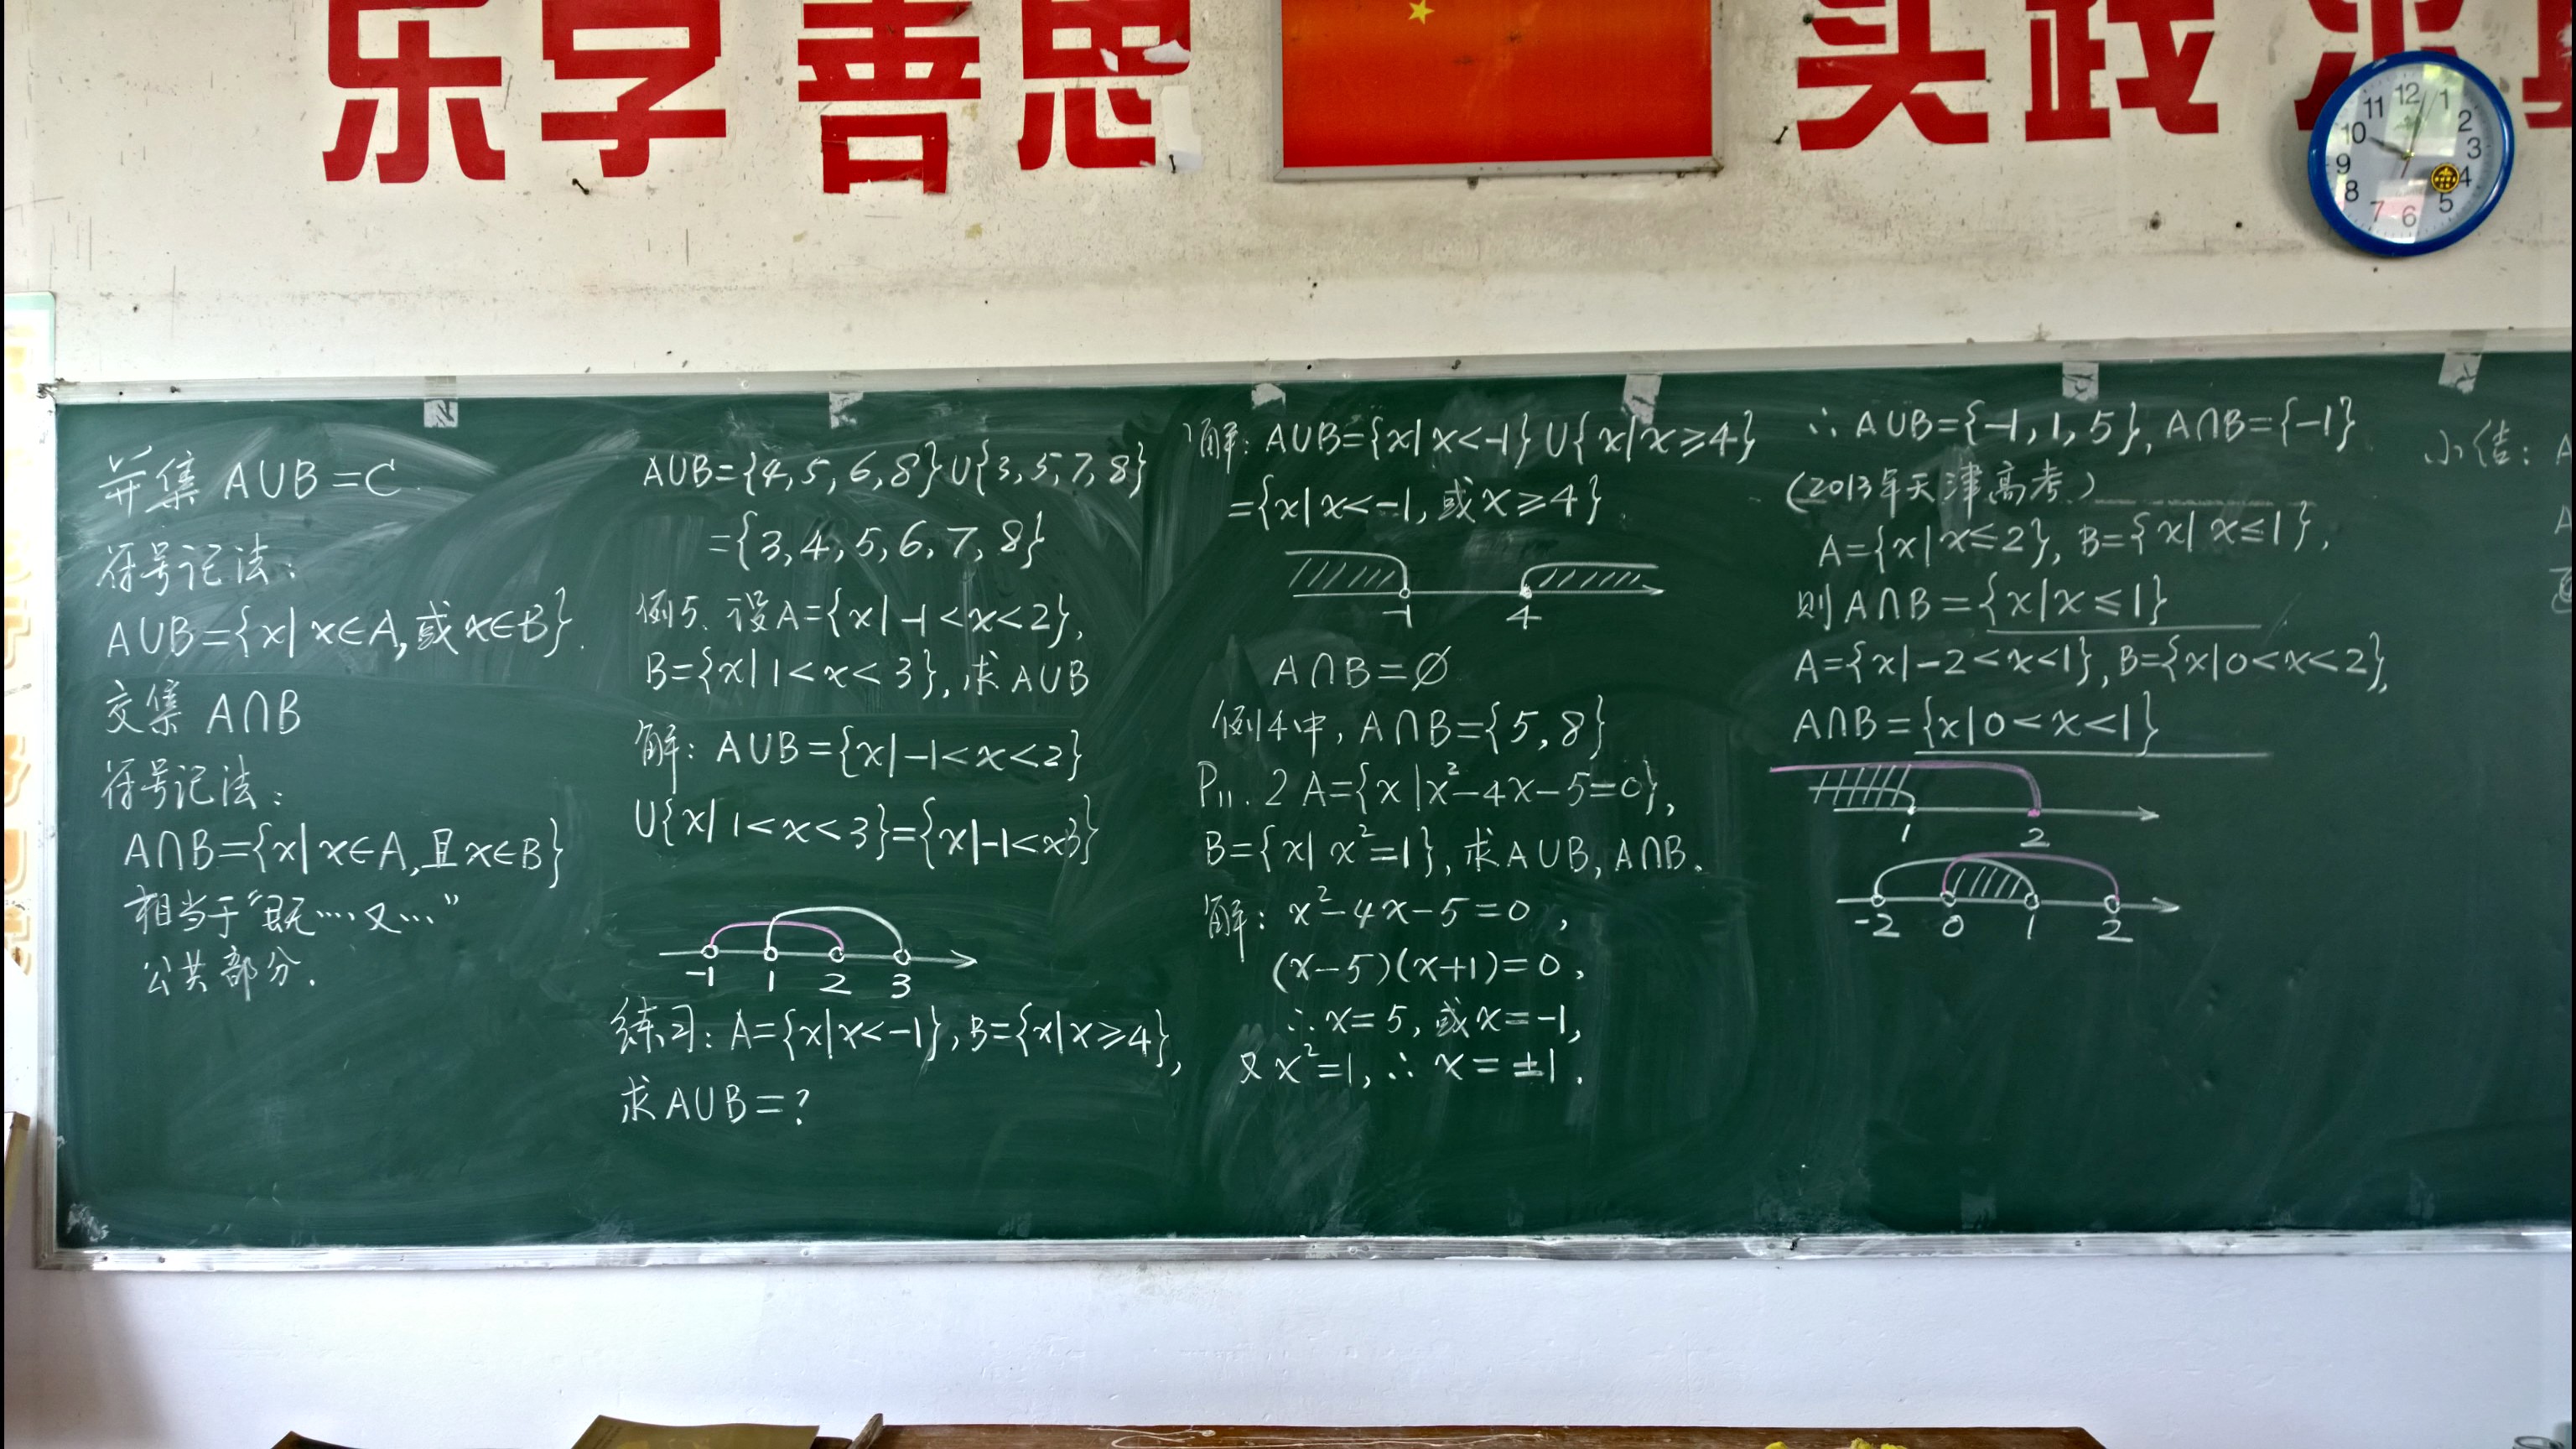 乐学善思
实践求真
12 1 2 3 4 5 6 7 8 9 10 11
并集 A∪B=C.
符号记法:
A∪B={x|x∈A,或x∈B}.
交集 A∩B
符号记法:
A∩B={x|x∈A,且x∈B}
相当于“既…又…”
公共部分.
A∪B={4,5,6,8}∪{3,5,7,8}
={3,4,5,6,7,8}
例5. 设A={x|-1<x<2},
B={x|1<x<3},求A∪B
解: A∪B={x|-1<x<2}
∪{x|1<x<3}={x|-1<x3}
-1 1 2 3
练习: A={x|x<-1},B={x|x≥4},
求A∪B=?
解: A∪B={x|x<-1}∪{x|x≥4}
={x|x<-1,或x≥4}.
-1 4
A∩B=∅
例4中, A∩B={5,8}
P11. 2 A={x|x²-4x-5=0},
B={x|x²=1},求A∪B,A∩B.
解: x²-4x-5=0,
(x-5)(x+1)=0,
∴x=5,或x=-1,
又x²=1,∴x=±1.
∴A∪B={-1,1,5},A∩B={-1}
(2013年天津高考)
A={x|x≤2},B={x|x≤1},
则A∩B={x|x≤1}
A={x|-2<x<1},B={x|0<x<2},
A∩B={x|0<x<1}
1 2
-2 0 1 2
小结: A
A